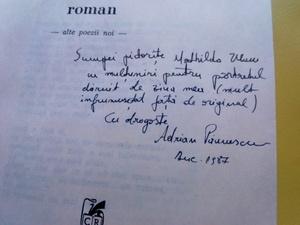 roman
— alte poezii noi —
Scumpei pictorițe Mathilda
cu mulțumiri pentru portretul
dăruit de ziua mea (mult
înfrumusețat față de original)
Cu dragoste
Adrian Păunescu
Buc. 1987
CR